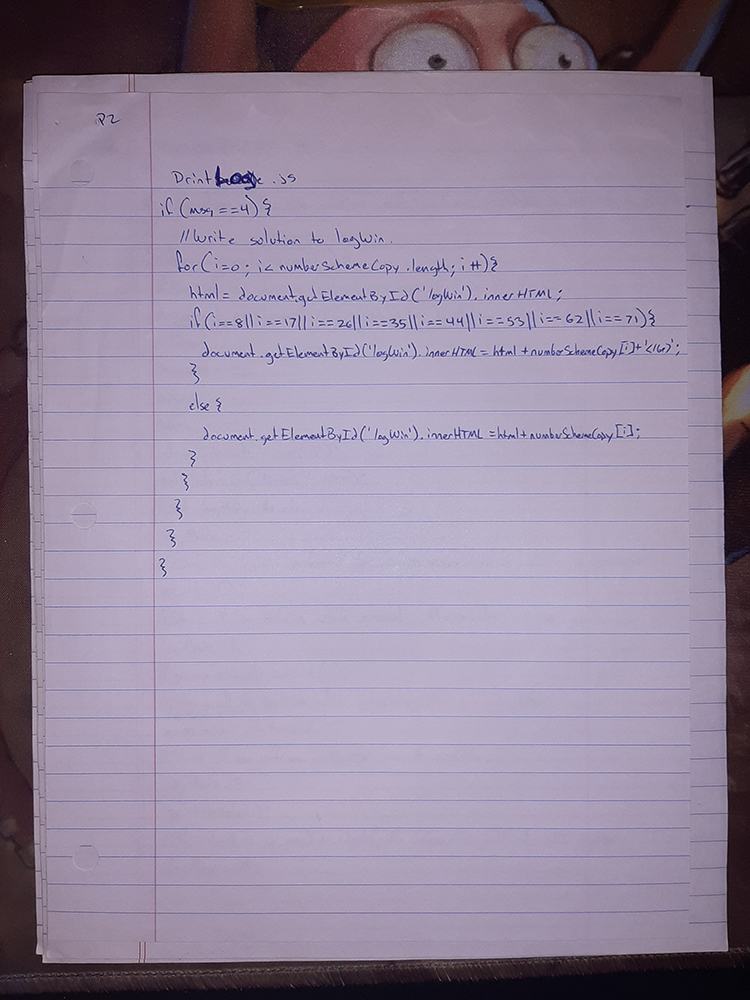 P2
PrintLog.js
if (msg ==4) {
//Write solution to logWin.
for(i=0; i< numberSchemeCopy.length; i++){
html= document.getElementById('logWin').innerHTML;
if (i==8||i==17||i==26||i==35||i==44||i==53||i==62||i==71){
document.getElementById('logWin').innerHTML = html + numberSchemeCopy[i]+'<br>';
}
else {
document.getElementById('logWin').innerHTML =html+numberSchemeCopy[i];
}
}
}
}
}